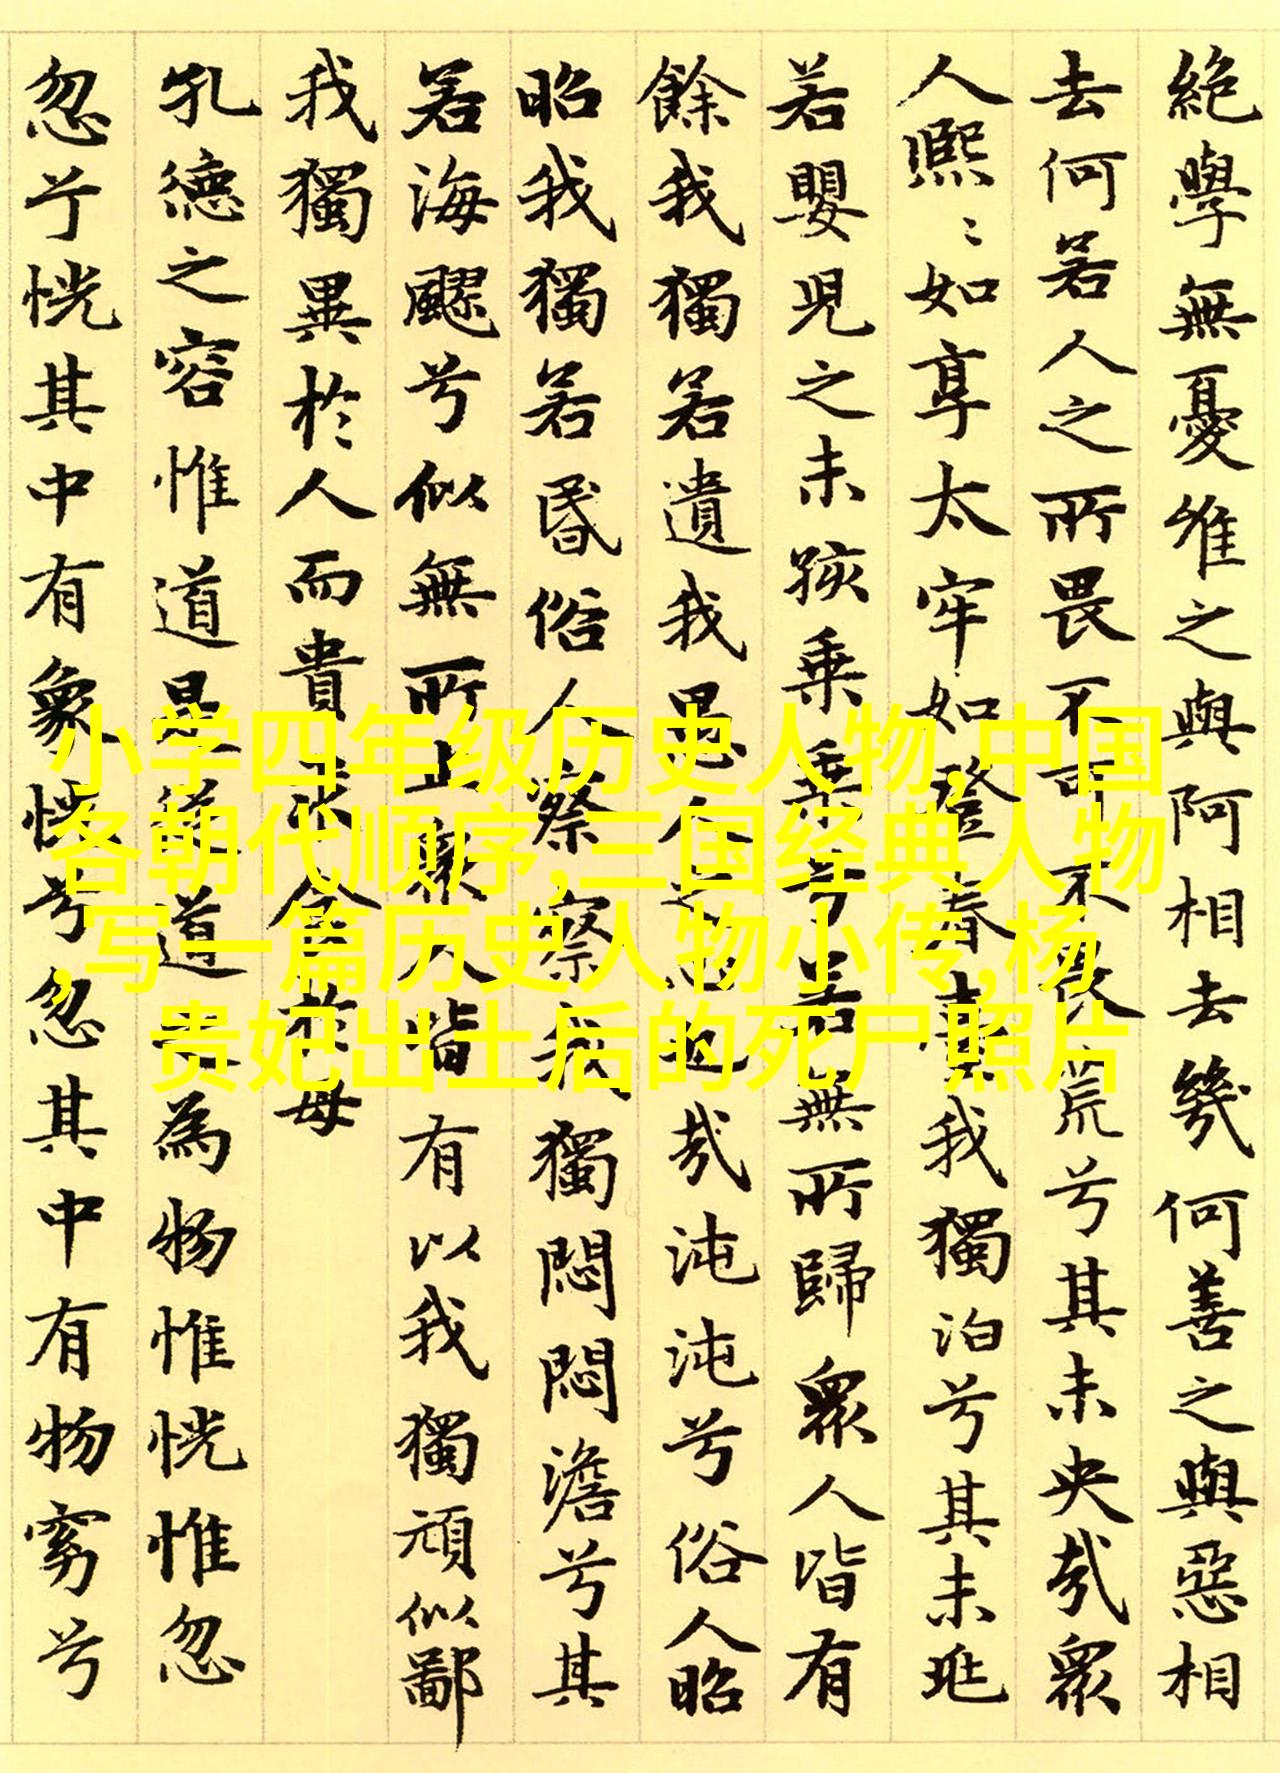 絶學無憂唯之與阿相去幾何善之與惡相
去何若人之所畏不可不畏荒兮其未央哉眾
人熙〻如享太牢如登春臺我獨泊兮其未兆
若嬰兒之未孩乘乘兮若無所歸眾人皆有
餘我獨若遺我愚人之心也哉沌沌兮俗人昭
昭我獨若昏俗人察察我獨悶悶澹兮其
若海飂兮似無所止眾人皆有以我獨頑似鄙
我獨異於人而貴求食於母
孔德之容惟道是從道之為物惟恍惟忽
忽兮恍其中有象恍兮忽其中有物窈兮
小学四年级历史人物,中国
各朝代顺序,三国经典人物
,写一篇历史人物小传,杨
贵妃出土后的死尸照片